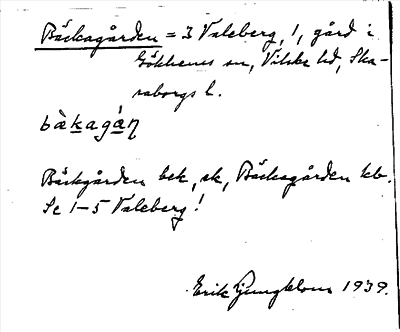 Bäckagården = 3 Valeberg, 1, gård i
Gökhems sn, Vilske hd, Ska-
raborgs l.
bàkagán
Bäckgården bek, ek, Bäckagården kb.
Se 1-5 Valeberg!
Erik Ljungblom 1939.